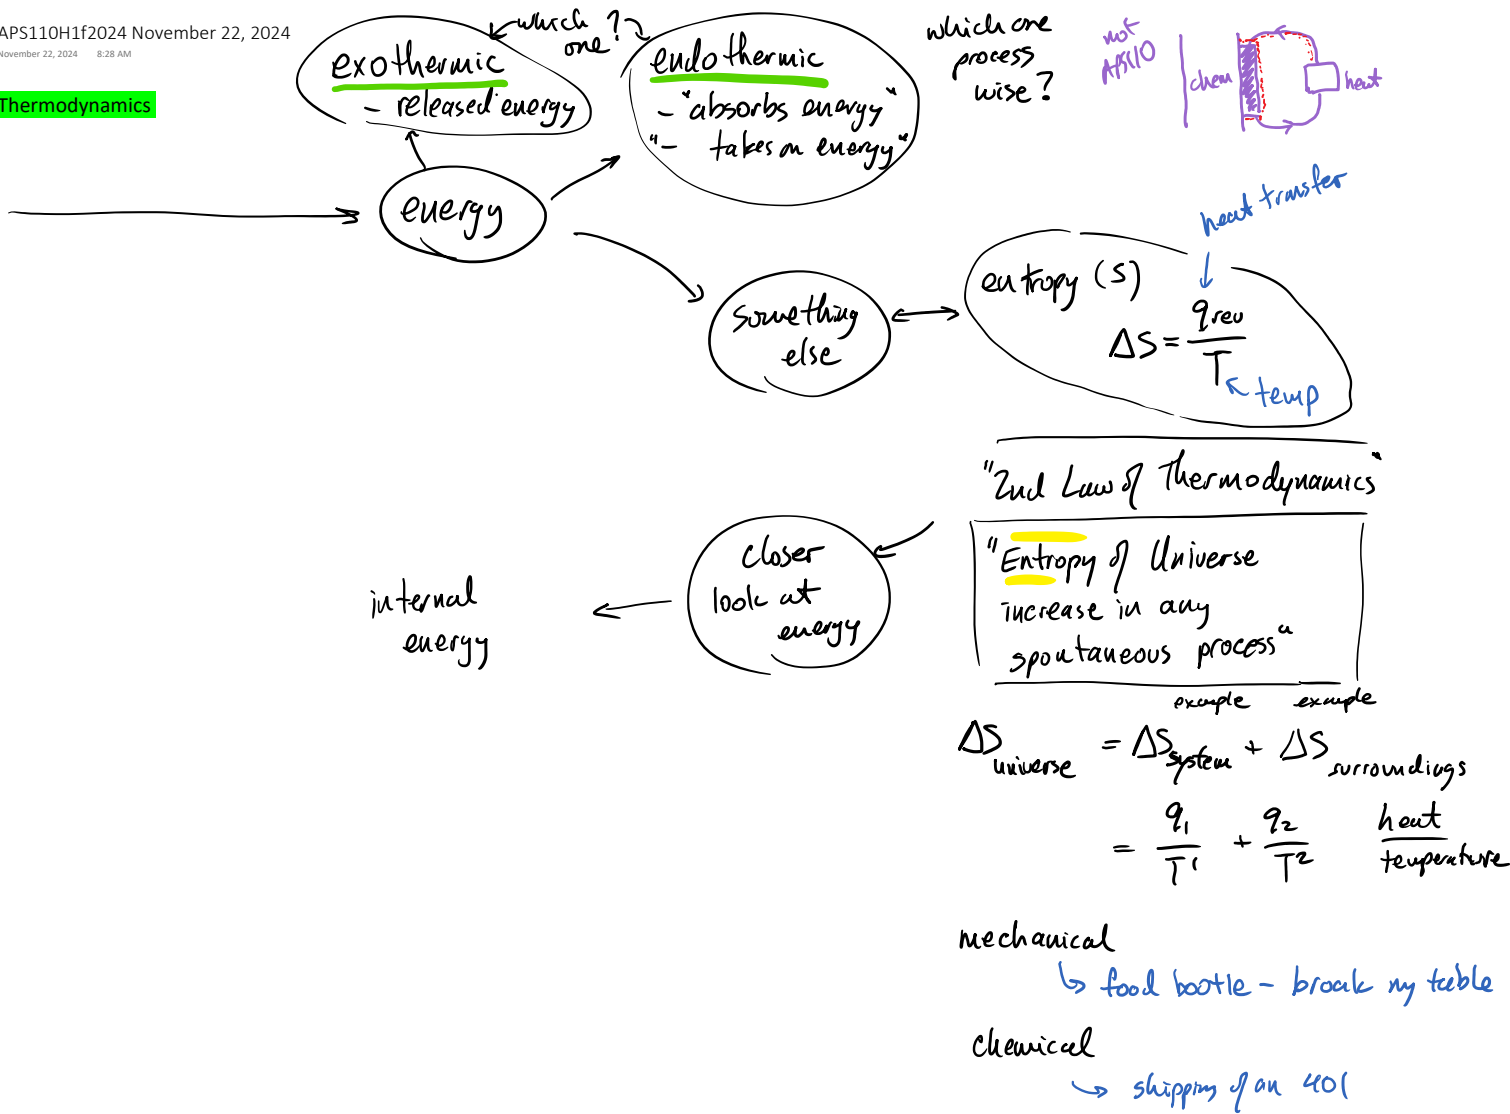 APS110H1f2024 November 22, 2024
November 22, 2024 8:28 AM
Thermodynamics
exothermic
- released energy
which
one?
endothermic
- "absorbs energy"
"- takes on energy"
which one
process
wise?
not
APS110
chem
heat
energy
something
else
heat transfer
entropy (S)
ΔS = q rev / T
temp
"2nd Law of Thermodynamics"
"Entropy of Universe
increase in any
spontaneous process"
closer
look at
energy
internal
energy
example example
ΔS universe = ΔS system + ΔS surroundings
= q1 / T1 + q2 / T2 heat / temperature
mechanical
↳ food bootle - break my table
chemical
→ shipping of an 401